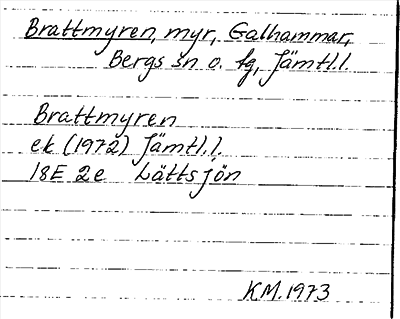 Brattmyren, myr, Galhammar,
Bergs sn o. tg, Jämtl.l.
Brattmyren
ek (1972) Jämtl.l.
18E 2e Lättsjön
KM.1973